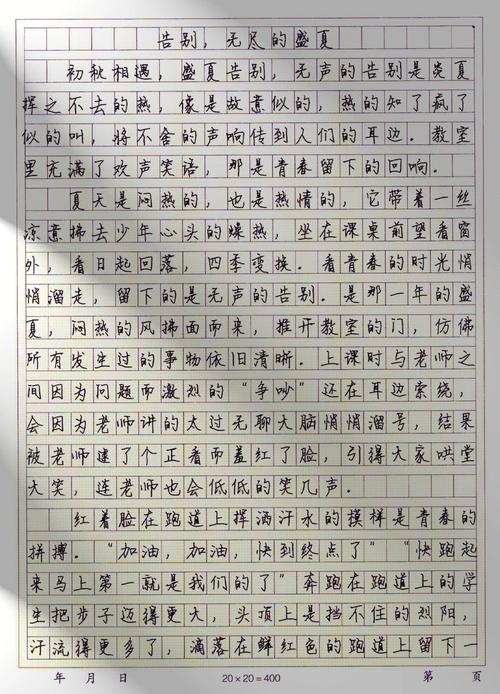 告别,无尽的盛夏
初秋相遇,盛夏告别,无声的告别是炎夏
挥之不去的热,像是故意似的,热的知了疯了
似的叫,将不舍的声响传到人们的耳边。教室
里充满了欢声笑语,那是青春留下的回响。
夏天是闷热的,也是热情的,它带着一丝
凉意拂去少年心头的燥热,坐在课桌前望着窗
外,看日起回落,四季变换。看青春的时光悄
悄溜走,留下的是无声的告别。是那一年的盛
夏,闷热的风拂面而来,推开教室的门,仿佛
所有发生过的事物依旧清晰。上课时与老师之
间因为问题而激烈的“争吵”还在耳边萦绕,
会因为老师讲的太过无聊大脑悄悄溜号,结果
被老师逮了个正着而羞红了脸,引得大家哄堂
大笑,连老师也会低低的笑几声。
红着脸在跑道上挥洒汗水的模样是青春的
拼搏。“加油,加油,快到终点了”“快跑起
来马上第一就是我们的了”奔跑在跑道上的学
生把步子迈得更大,头顶上是挡不住的烈阳,
汗流得更多了,滴落在鲜红色的跑道上留下一
年 月 日 20×20=400 第 页